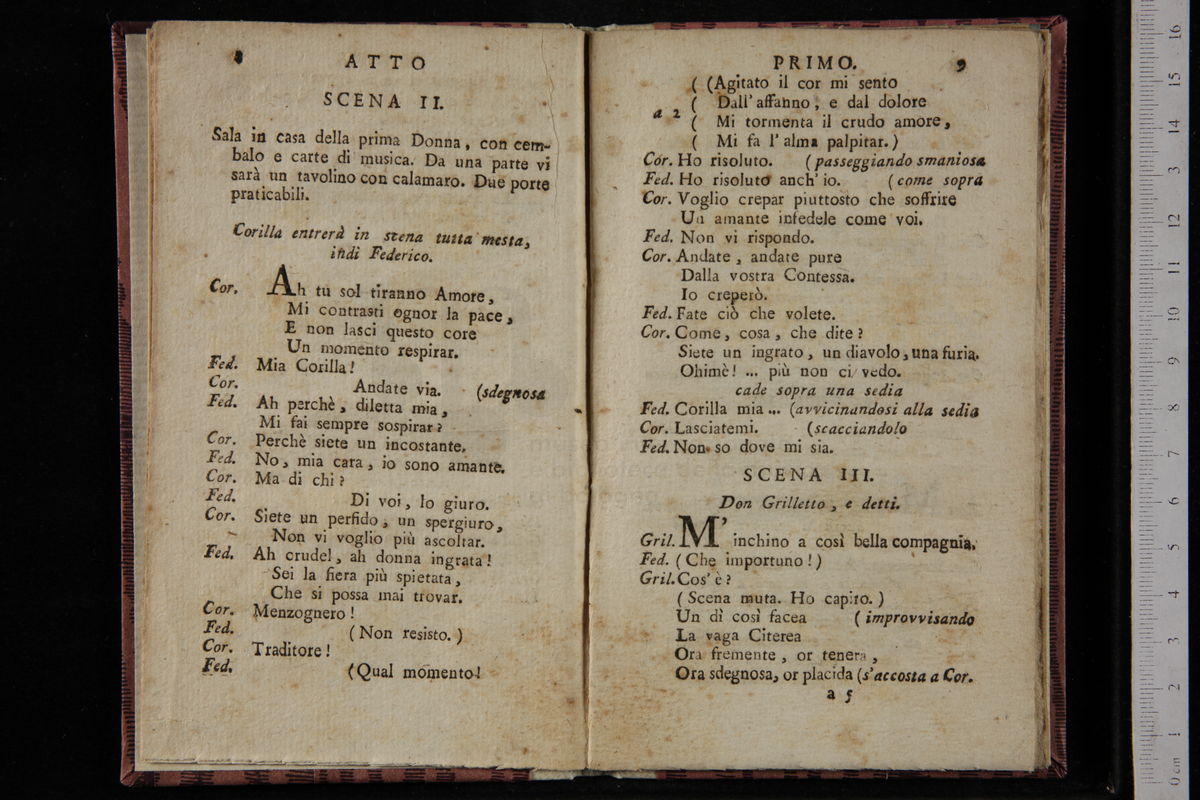 8
ATTO
SCENA II.
Sala in casa della prima Donna, con cem-
balo e carte di musica. Da una parte vi
sarà un tavolino con calamaro. Due porte
praticabili.
Corilla entrerà in scena tutta mesta,
indi Federico.
Cor. Ah tu sol tiranno Amore,
Mi contrasti ognor la pace,
E non lasci questo core
Un momento respirar.
Fed. Mia Corilla!
Cor. Andate via. (sdegnosa
Fed. Ah perchè, diletta mia,
Mi fai sempre sospirar?
Cor. Perchè siete un incostante.
Fed. No, mia cara, io sono amante.
Cor. Ma di chi?
Fed. Di voi, lo giuro.
Cor. Siete un perfido, un spergiuro,
Non vi voglio più ascoltar.
Fed. Ah crudel, ah donna ingrata!
Sei la fiera più spietata,
Che si possa mai trovar.
Cor. Menzognero!
Fed. (Non resisto.)
Cor. Traditore!
Fed. (Qual momento!
PRIMO. 9
( (Agitato il cor mi sento
( Dall'affanno, e dal dolore
a 2 ( Mi tormenta il crudo amore,
( Mi fa l'alma palpitar.)
Cor. Ho risoluto. (passeggiando smaniosa
Fed. Ho risoluto anch'io. (come sopra
Cor. Voglio crepar piuttosto che soffrire
Un amante infedele come voi.
Fed. Non vi rispondo.
Cor. Andate, andate pure
Dalla vostra Contessa.
Io creperò.
Fed. Fate ciò che volete.
Cor. Come, cosa, che dite?
Siete un ingrato, un diavolo, una furia.
Ohimè! ... più non ci vedo.
cade sopra una sedia
Fed. Corilla mia ... (avvicinandosi alla sedia
Cor. Lasciatemi. (scacciandolo
Fed. Non so dove mi sia.
SCENA III.
Don Grilletto, e detti.
Gril. M'inchino a così bella compagnia.
Fed. (Che importuno!)
Gril. Cos'è?
(Scena muta. Ho capito.)
Un dì così facea (improvvisando
La vaga Citerea
Ora fremente, or tenera,
Ora sdegnosa, or placida (s'accosta a Cor.
a 5
0 cm 1 2 3 4 5 6 7 8 9 10 11 12 13 14 15 16